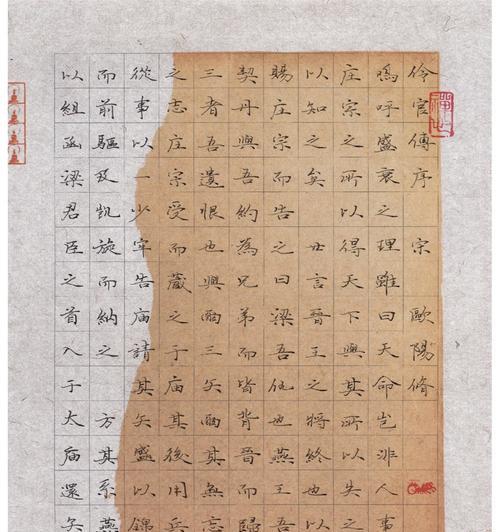 伶官傳序 宋 歐陽脩
嗚呼盛衰之理雖曰天命豈非人事
庄宗之所以得天下與其所以失之
以知之矣 世言晉王之將終也以
賜庄宗而告之曰梁吾仇也燕王吾
契丹與吾約為兄弟而皆背晉而歸
三者吾遺恨也與爾三矢爾其無忘
之志庄宗受而藏之于庙其後用兵
從事以一少牢告庙請其矢盛以錦
而前驅及凱旋而納之 方其系燕
以組函梁君臣之首入于大庙還矢